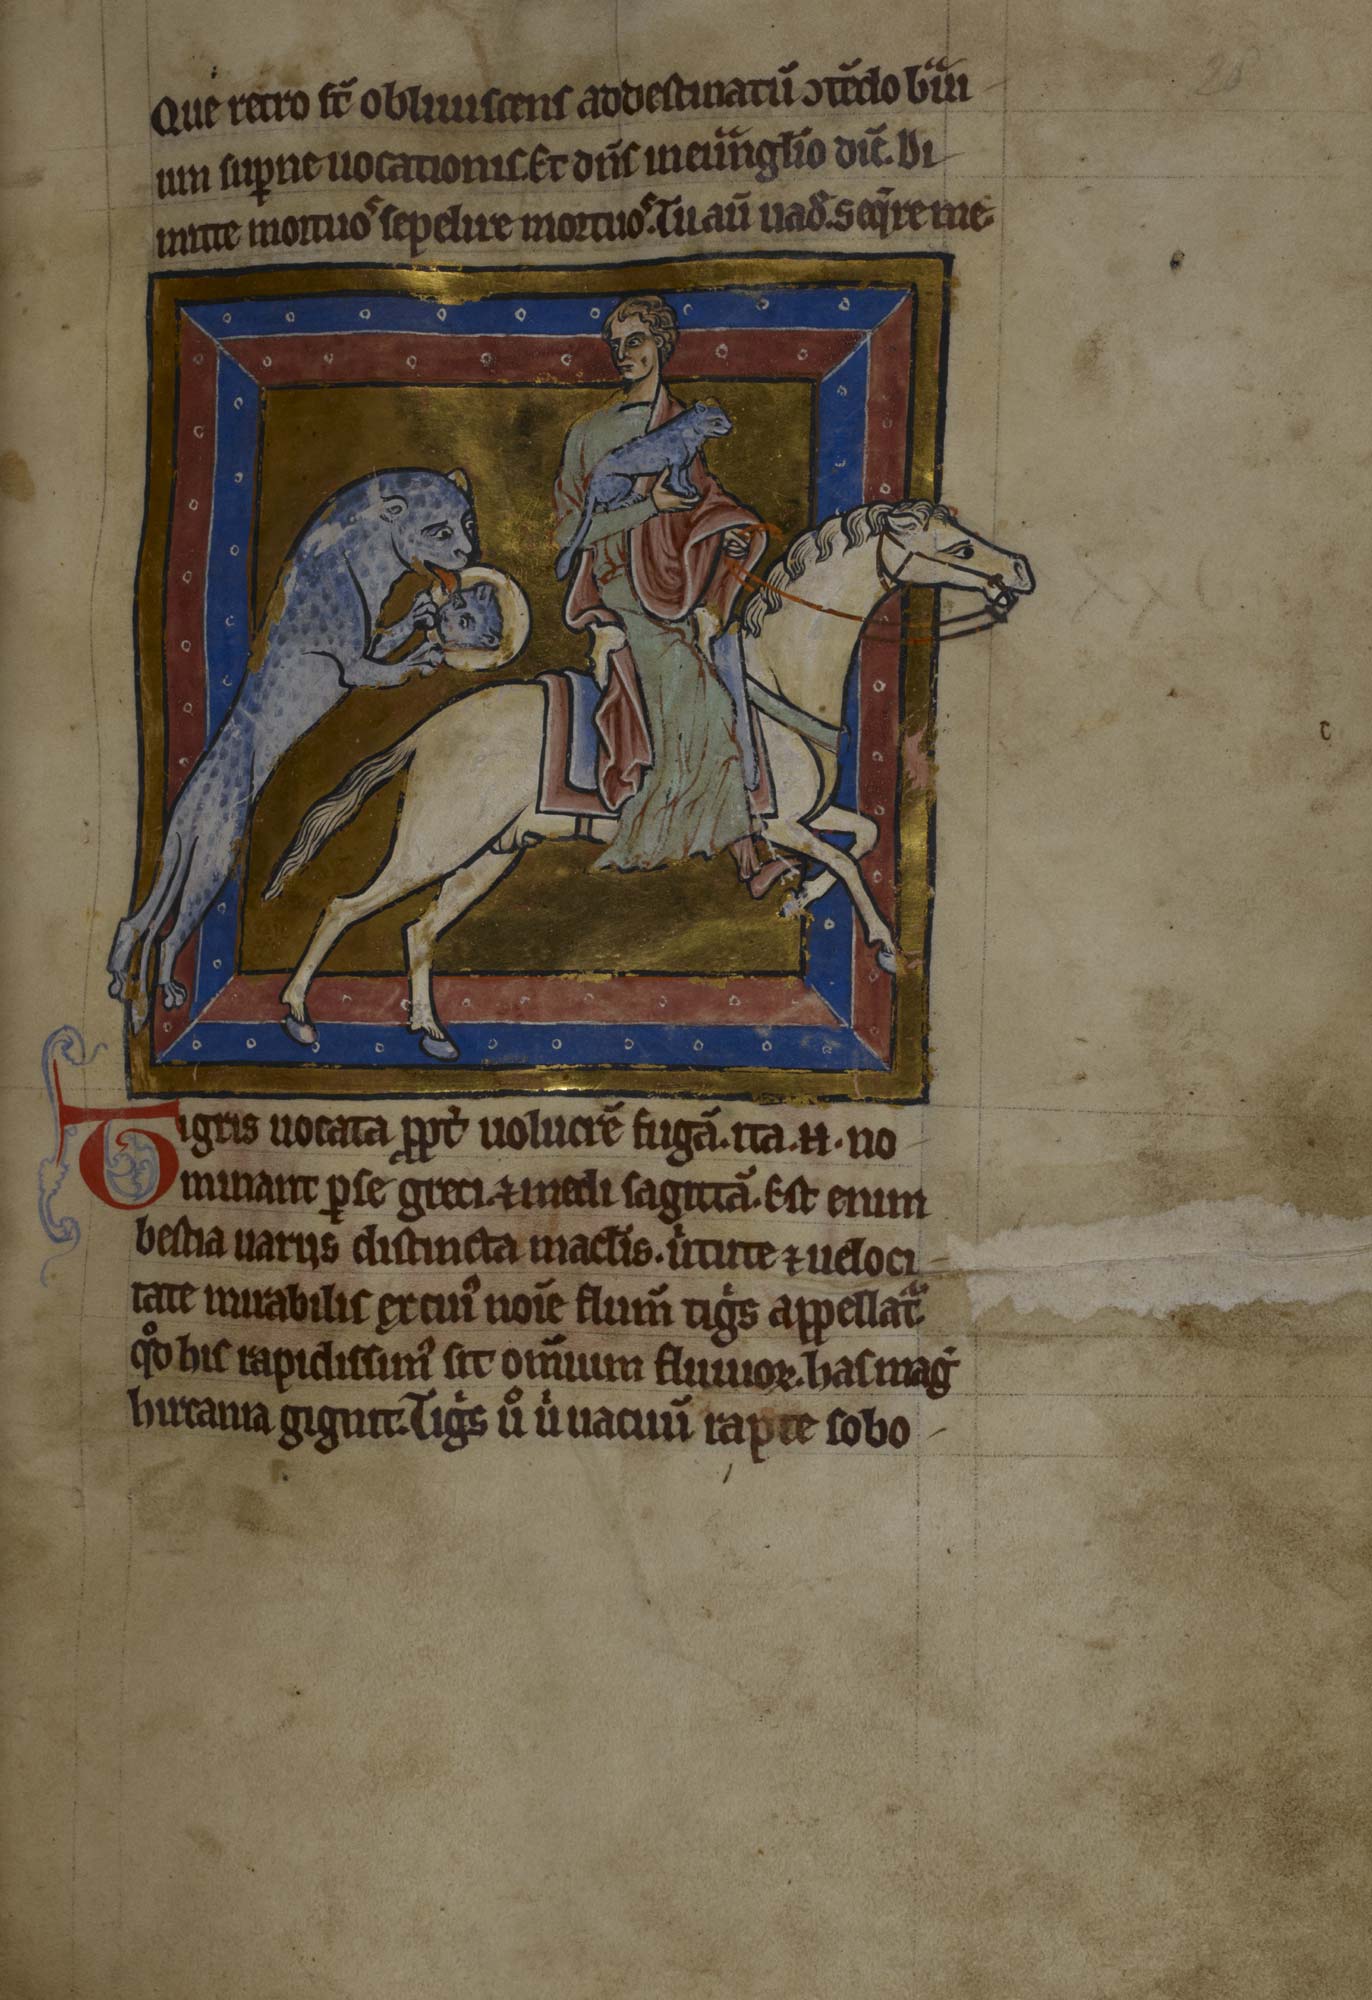 28
Que retro st̄ obliuiscens ad destinatū ↄtēdo bͣui
um suꝑne uocationis. Et dn̄s in euͣngl̄io dic̄. Di
mitte mortuoˢ sepelire mortuoˢ. Tu aū uad̄. ⁊ seq̄re me.
Tigris uocata ꝓpt̓ uolucrē fugā. ita .n. no
minant ꝑse greci. ⁊ medi sagittā. Est enim
bestia uariis distincta macl̄is. ũtute ⁊ ueloci
tate mirabilis ex cuiꝰ noīe flum̄ tigͥs appellatͬ
qͦd his rapidissimꝰ sit om̄ium fluuioꝝ. has magͥ
hircania gignit. Tigͥs uͦ uͥ uacuū rapte sobo